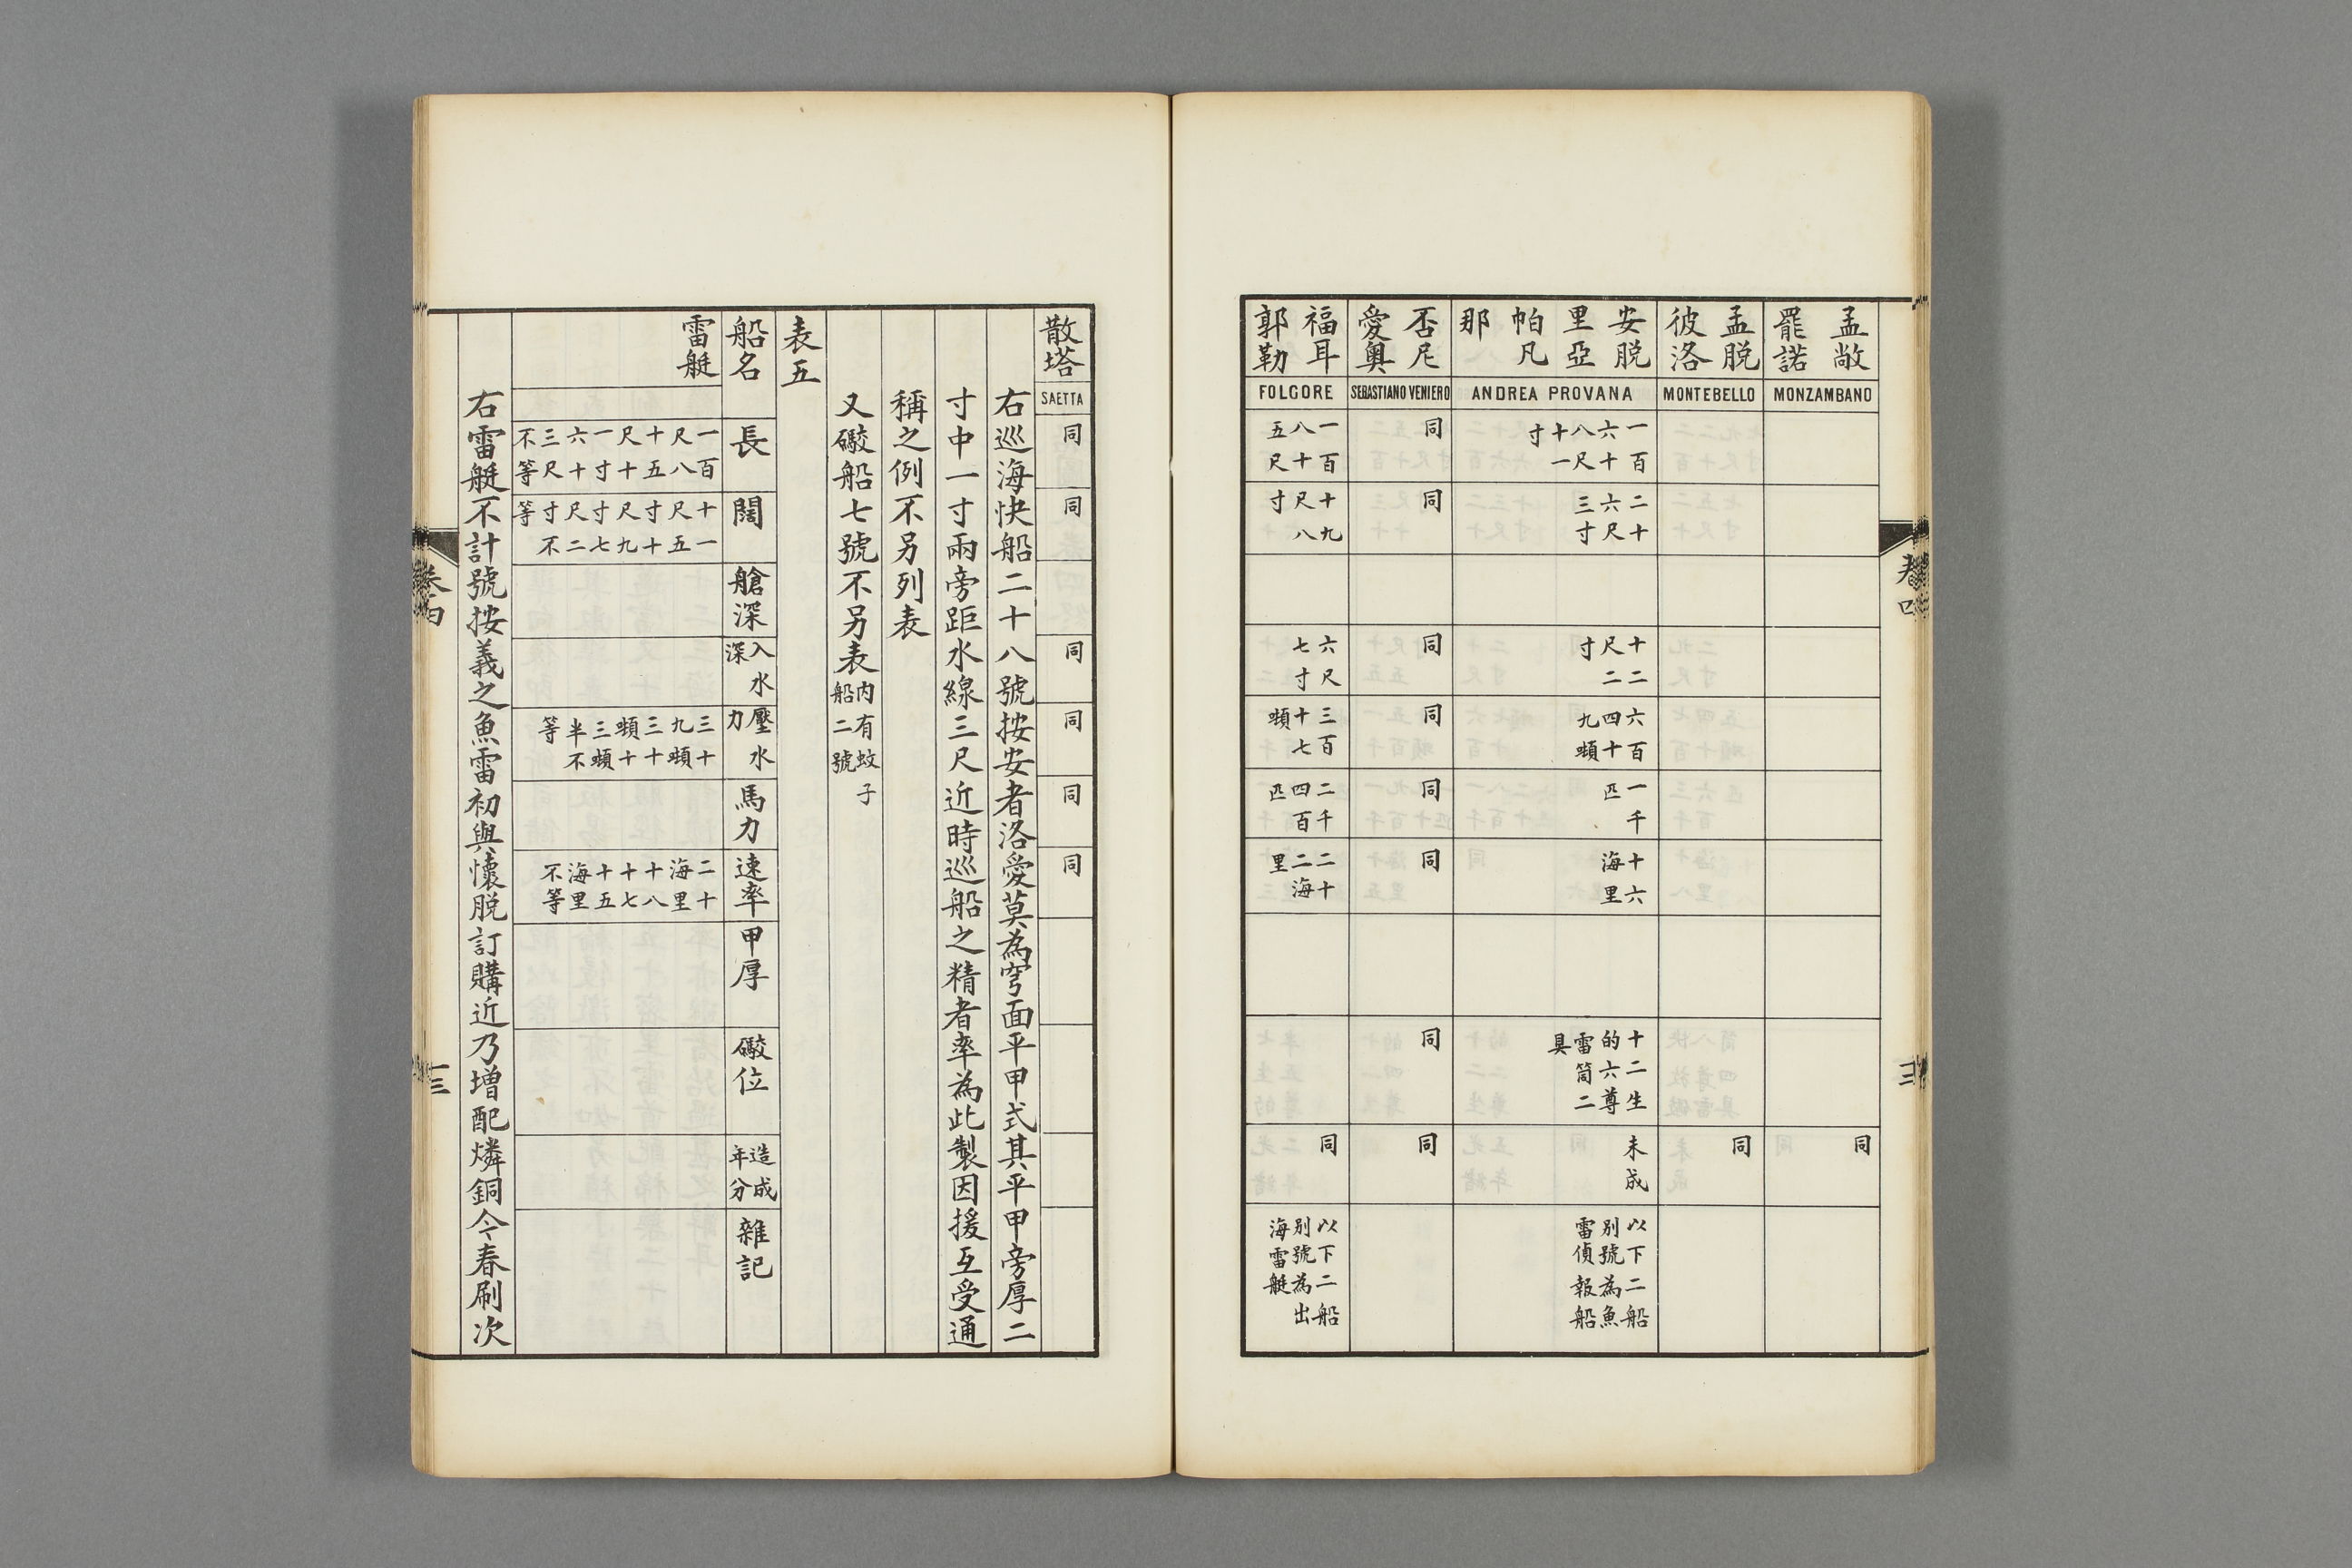 孟敞
罷諾
MONZAMBANO
同
孟脱
彼洛
MONTEBELLO
同
安脱
里亞
帕凡
那
ANDREA PROVANA
一百
六十
八尺
十一
寸
二十
六尺
三寸
十二
尺二
寸
六百
四十
九頓
一千
匹
十六
海里
十二生
的六尊
雷筒二
具
未成
以下二船
別號為魚
雷偵報船
否尼
愛奧
SEBASTIANO VENIERO
同
同
同
同
同
同
同
同
福耳
郭勒
FOLGORE
一百
八十
五尺
十九
尺八
寸
六尺
七寸
三百
十七
頓
二千
四百
匹
二十
二海
里
同
以下二船
別號為出
海雷艇
卷四
散塔
SAETTA
同
同
同
同
同
同
右巡海快船二十八號按安者洛愛莫為穹面平甲式其平甲旁厚二
寸中一寸兩旁距水線三尺近時巡船之精者率為此製因援互受通
稱之例不另列表
又礮船七號不另表
內有蚊子
船二號
表五
船名
長
闊
艙深
入水
深
壓水
力
馬力
速率
甲厚
礮位
造成
年分
雜記
雷艇
一百
尺八
十五
尺十
一寸
六十
三尺
不等
十一
尺五
寸十
尺九
寸七
尺二
寸不
等
三十
九頓
三十
頓十
三頓
半不
等
二十
海里
十八
十七
十五
海里
不等
右雷艇不計號按義之魚雷初與懷脱訂購近乃增配燐銅今春刷次
卷四
十三